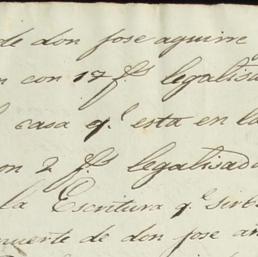 de don jose aguirre
con 17 f.s legalisa
casa q.e esta en la
con 2 f.s legalisada
la Escritura q.e sirb
muerte de don jose an